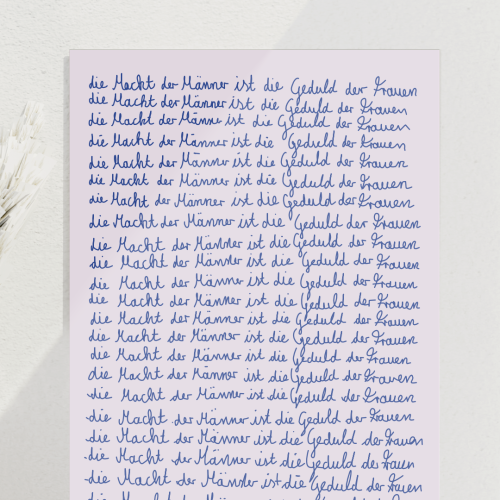 die Macht der Männer ist die Geduld der Frauen
die Macht der Männer ist die Geduld der Frauen
die Macht der Männer ist die Geduld der Frauen
die Macht der Männer ist die Geduld der Frauen
die Macht der Männer ist die Geduld der Frauen
die Macht der Männer ist die Geduld der Frauen
die Macht der Männer ist die Geduld der Frauen
die Macht der Männer ist die Geduld der Frauen
die Macht der Männer ist die Geduld der Frauen
die Macht der Männer ist die Geduld der Frauen
die Macht der Männer ist die Geduld der Frauen
die Macht der Männer ist die Geduld der Frauen
die Macht der Männer ist die Geduld der Frauen
die Macht der Männer ist die Geduld der Frauen
die Macht der Männer ist die Geduld der Frauen
die Macht der Männer ist die Geduld der Frauen
die Macht der Männer ist die Geduld der Frauen
die Macht der Männer ist die Geduld der Frauen
die Macht der Männer ist die Geduld der Frauen
die Macht der Männer ist die Geduld der Frauen
die Macht der Männer ist die Geduld der Frauen